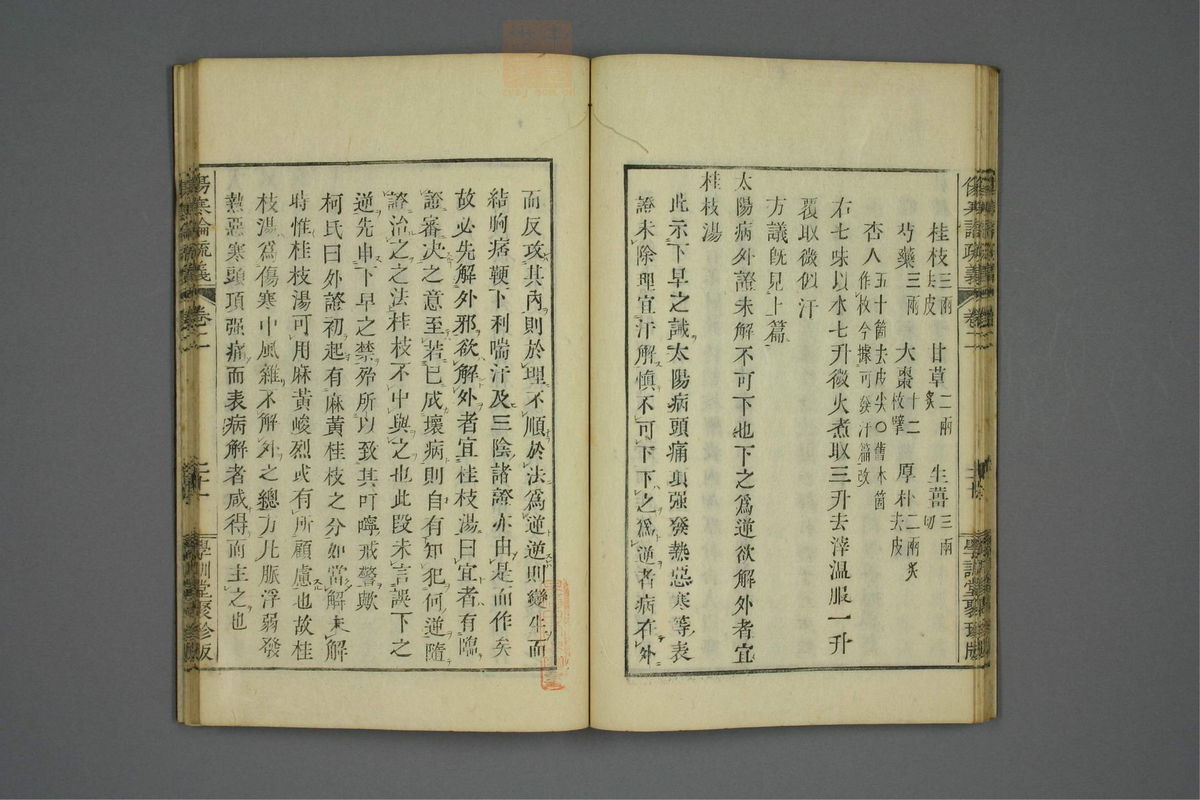 桂枝三兩去皮 甘草二兩炙 生薑三兩切
芍藥三兩 大棗十二枚擘 厚朴二兩炙去皮
杏人五十箇去皮尖〇舊木箇作枚今據可發汗篇改
右七味以水七升微火煮取三升去滓溫服一升
覆取微似汗
方議既見上篇
太陽病外證未解不可下也下之爲逆欲解外者宜
桂枝湯
此示下早之誡太陽病頭痛項强發熱惡寒等表
證未除理宜汗解愼不可下下之爲逆者病在外
而反攻其內則於理不順於法爲逆逆則變生而
結胸痞鞕下利喘汗及三陰諸證亦由是而作矣
故必先解外邪欲解外者宜桂枝湯曰宜者有臨
證審决之意至若已成壞病則自有知犯何逆隨
證治之之法桂枝不中與之也此段未言誤下之
逆先申下早之禁殆所以致其叮嚀戒警歟
柯氏曰外證初起有麻黃桂枝之分如當解未解
時惟桂枝湯可用麻黃峻烈或有所顧慮也故桂
枝湯爲傷寒中風雜不解外之總方凡脈浮弱發
熱惡寒頭項强痛而表病解者咸得而主之也
傷寒論疏義
卷二
學訓堂聚珍版